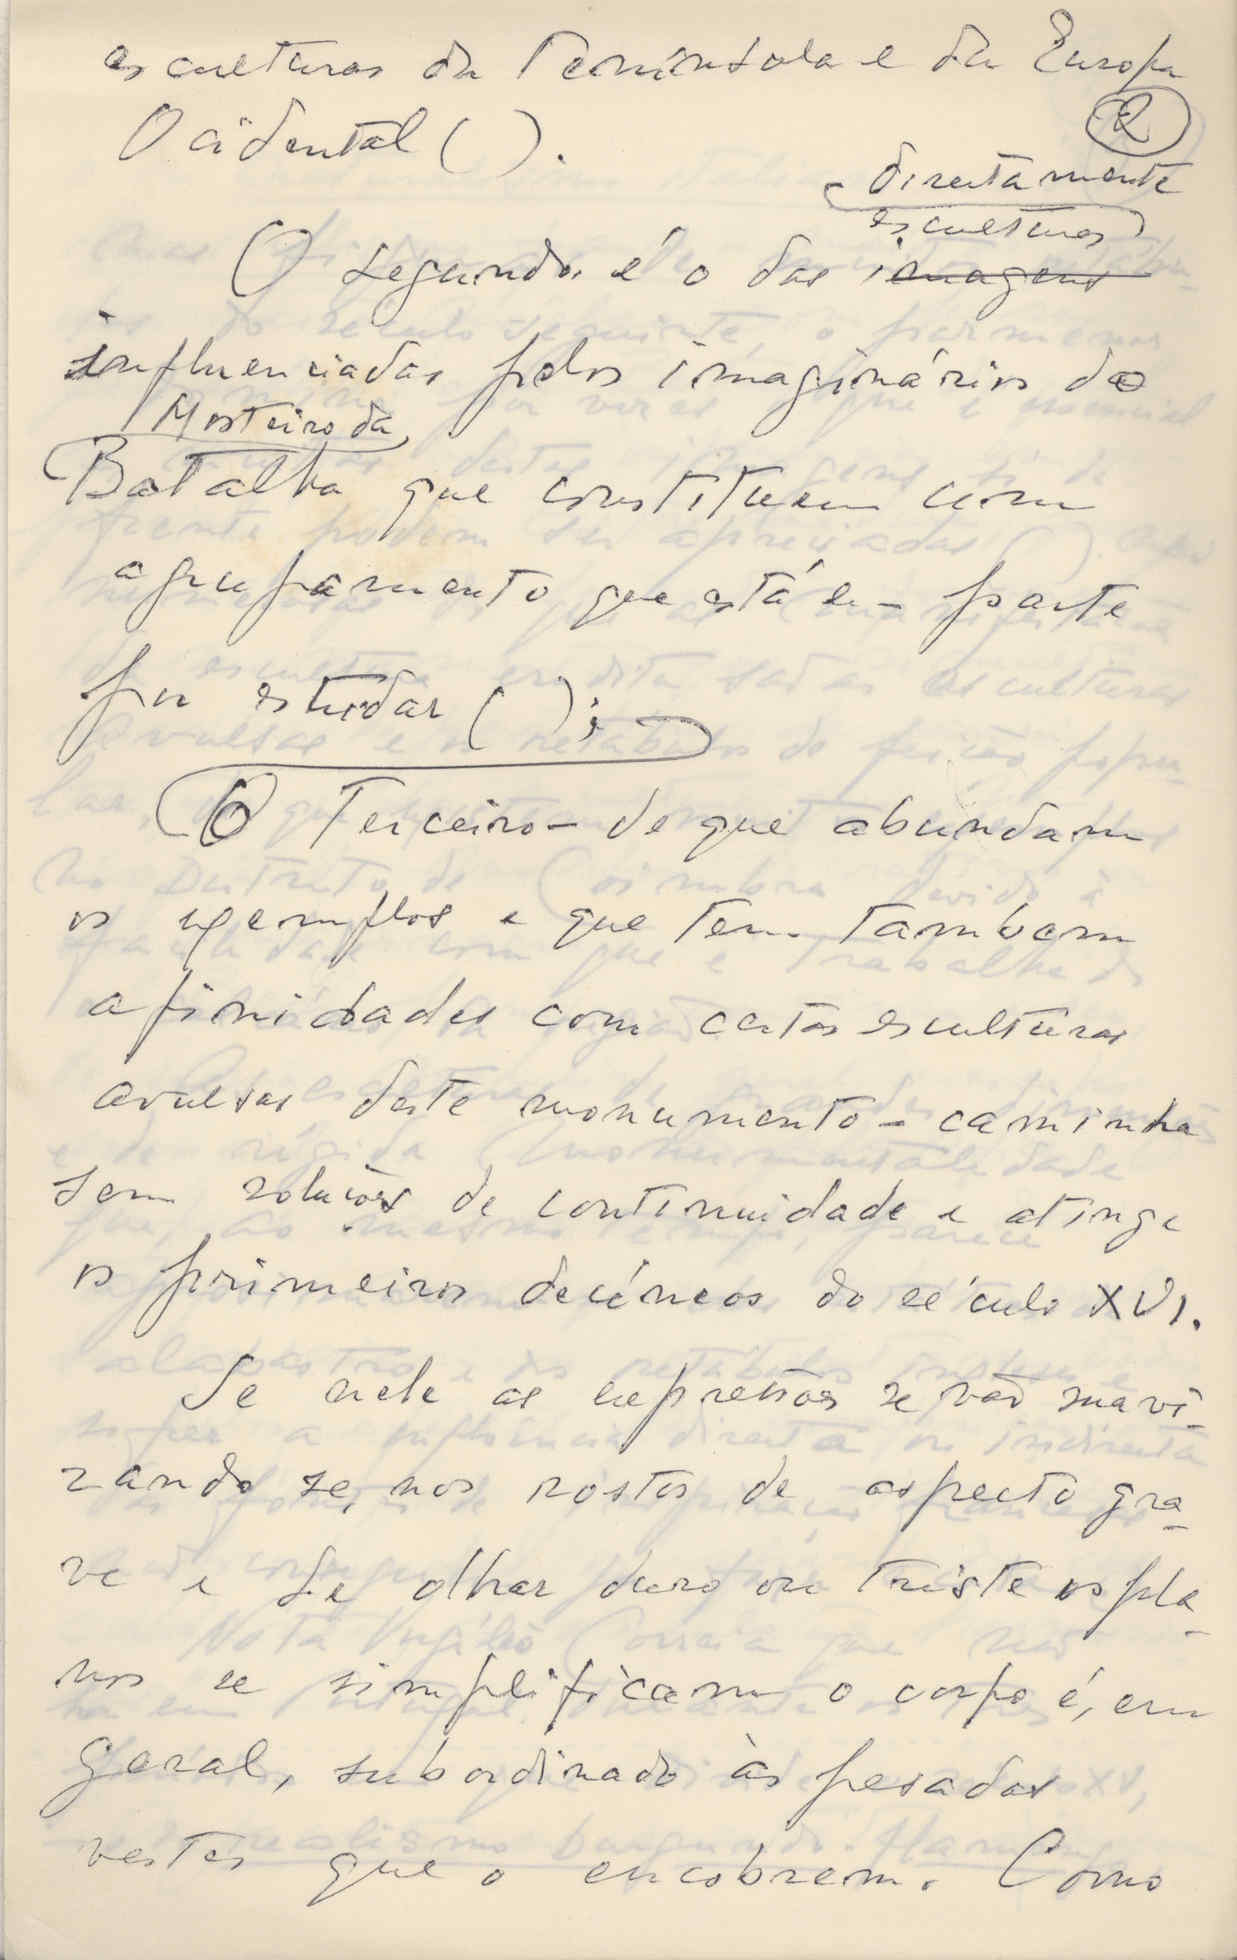 as culturas da Peninsula e da Europa
2
Ocidental ( ).
directamente
esculturas
O segundo é o das imagens
influenciadas pelos imaginários do
Mosteiro da
Batalha que constituem um
agrupamento que está em parte
por estudar ( );
O Terceiro - de que abundam
os exemplos e que tem tambem
afinidades com certas esculturas
avulsas deste monumento - caminha
sem soluções de continuidade e atinge
os primeiros decéneos do século XVI.
Se nele as expressões se vão suavi-
zando se, nos rostos de aspecto gra-
ve e de olhar duro ou triste os pla-
nos se simplificam o corpo é, em
geral, subordinado às pesadas
vestes que o encobrem. Como